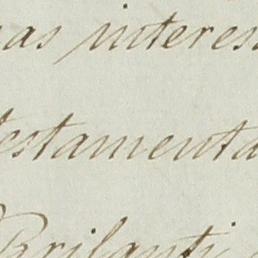 as interes
testamenta
Brilanti